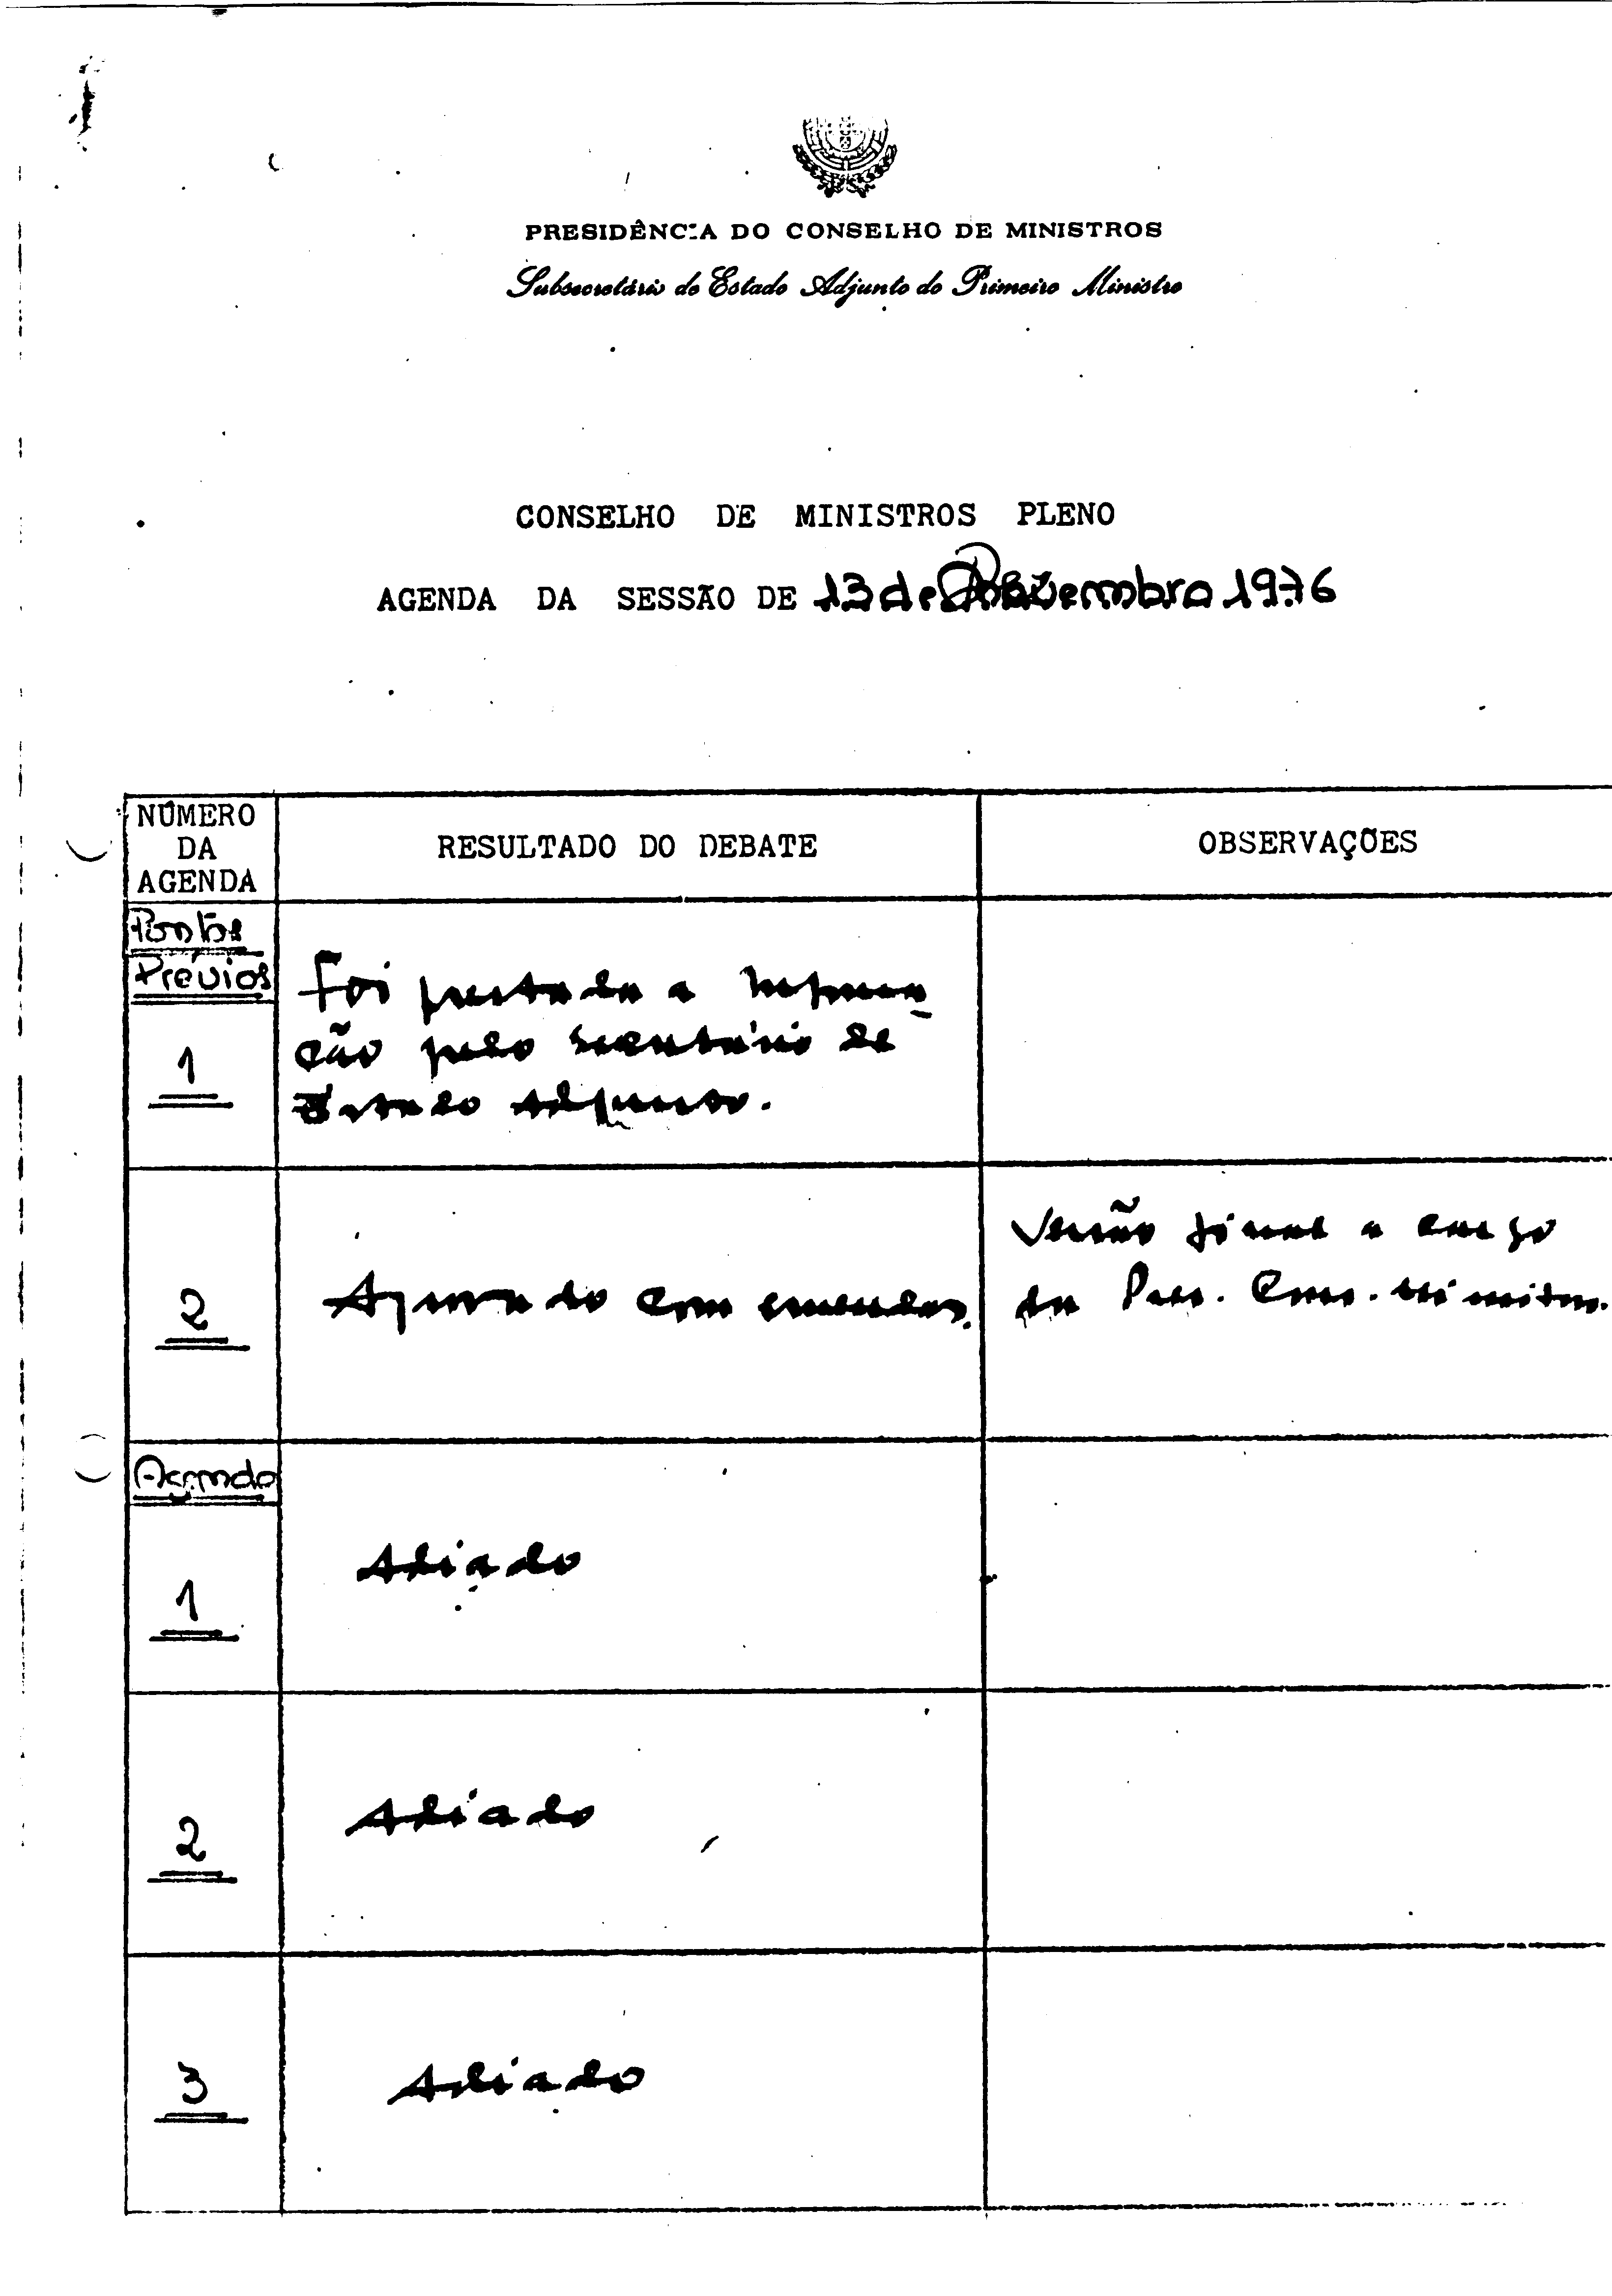 PRESIDÊNCIA DO CONSELHO DE MINISTROS
Subsecretário de Estado Adjunto do Primeiro Ministro
CONSELHO DE MINISTROS PLENO
AGENDA DA SESSÃO DE 13 de 1976
NÚMERO
DA
AGENDA
RESULTADO DO DEBATE
OBSERVAÇÕES
Pontos
Prévios
1
Foi prestada a informa-
ção pelo secretário de
Estado Adjunto.
2
Aprovado com emendas.
Versão final a cargo
da Pres. Cons. Ministros.
Agenda
1
Adiado
2
Adiado
3
Adiado